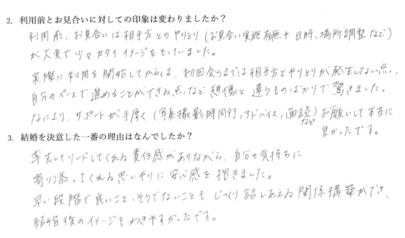 2. 利用前とお見合いに対しての印象は変わりましたか？
利用前、お見合いは相手方とのやりとり（お見合い実施有無や日時、場所調整など）
が大変で少々カタイイメージをもっていました。
実際に利用を開始してからは、初回会うまでは相手方とやりとりが発生しない点、
自分のペースで進めることができる点など想像と違うものばかりで驚きました。
なにより、サポートが手厚く（写真撮影時同行、アドバイス、面談など）お願いして本当に
良かったです。
3. 結婚を決意した一番の理由はなんでしたか？
率先してリードしてくれる責任感がありながら、自分の気持ちに
寄り添ってくれる思いやりに安心感を抱きました。
早い段階で良いこと、そうでないことも じっくり話しあえる関係構築ができ、
結婚後のイメージもわきやすかったです。